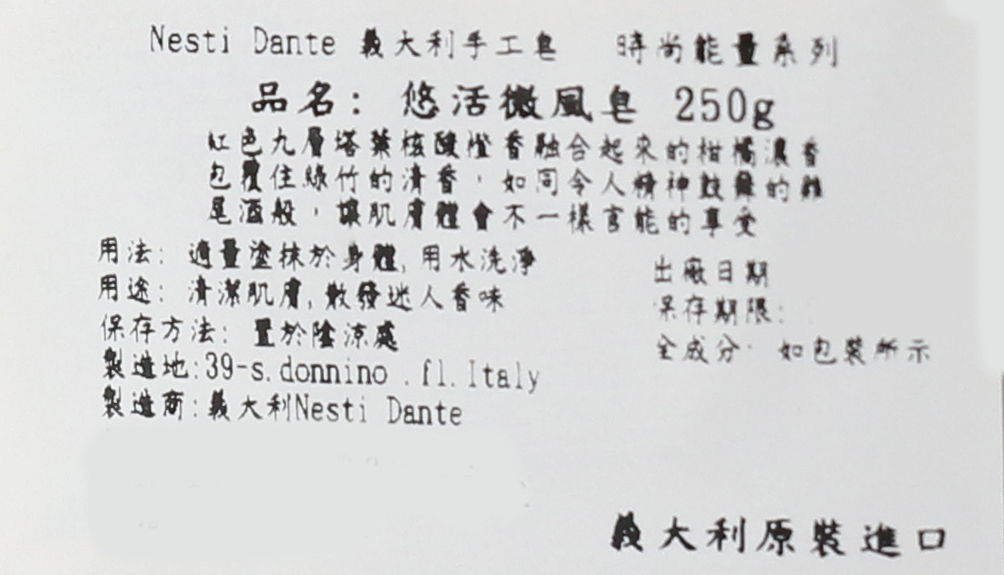 Nesti Dante 義大利手工皂 時尚能量系列
品名: 悠活微風皂 250g
紅色九層塔葉核酸燈香融合起來的柑橘濃香
包覆住綠竹的清香，如同令人精神鼓舞的雞
尾酒般，讓肌膚體會不一樣官能的享受
用法: 適量塗抹於身體,用水洗淨
用途: 清潔肌膚,散發迷人香味
保存方法: 置於陰涼處
製造地:39-s.donnino .fl.Italy
製造商:義大利Nesti Dante
出廠日期
保存期限:
全成分: 如包裝所示
義大利原裝進口